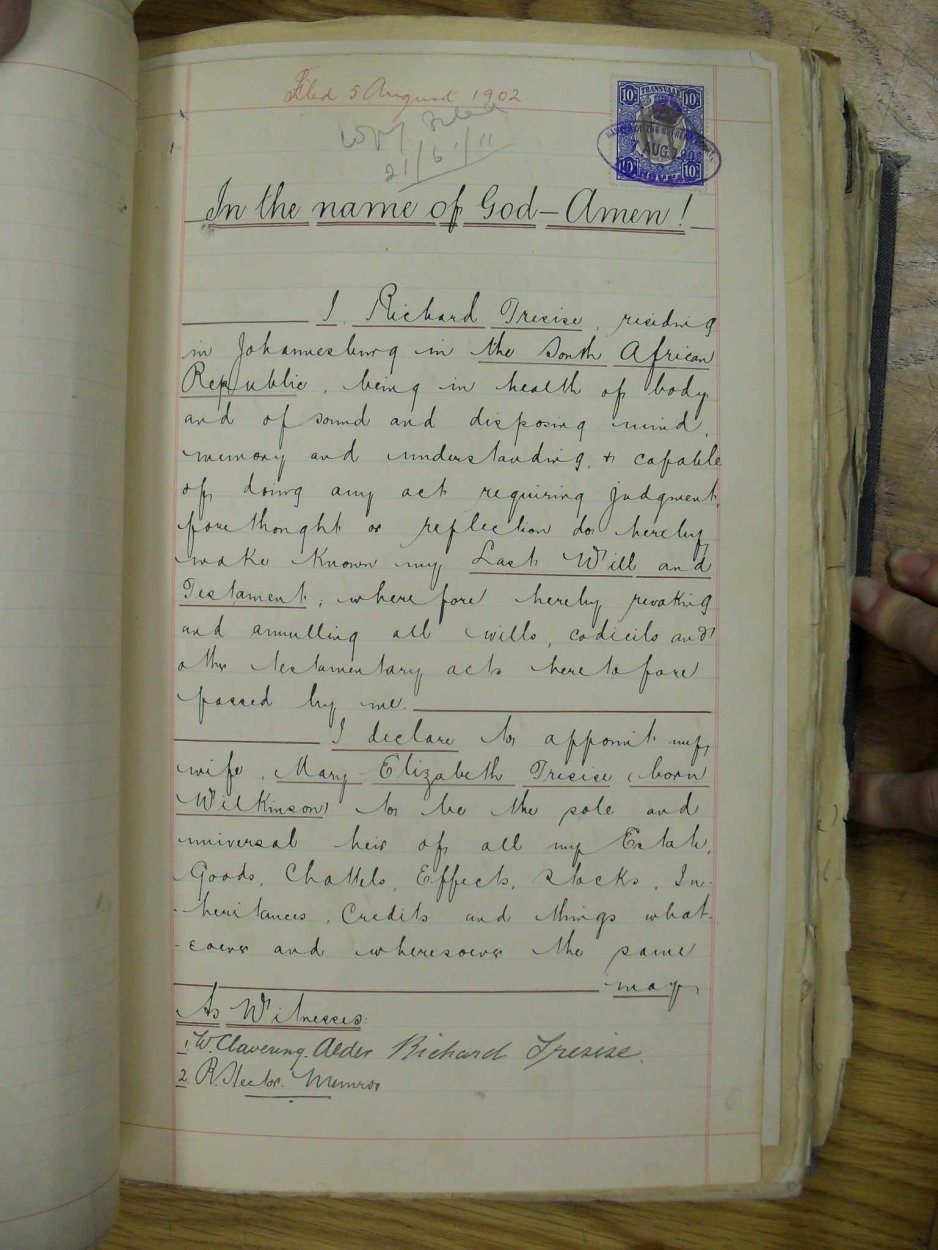 Filed 5 August 1902
Copy Filed
21/6/11
10/- TRANSVAAL 10/-
7 AUG 1902
10/- 10/-
In the name of God - Amen!
I, Richard Tresise, residing
in Johannesburg in the South African
Republic, being in health of body
and of sound and disposing mind,
memory and understanding, & capable
of doing any act requiring judgment,
forethought or reflection do hereby
make known my Last Will and
Testament, wherefore hereby revoking
and annulling all wills, codicils and
other testamentary acts heretofore
passed by me.
I declare to appoint my
wife, Mary Elizabeth Tresise (born
Wilkinson) to be the sole and
universal heir of all my Estate,
Goods, Chattels, Effects, Stocks, In-
-heritances, Credits and things what-
-soever and wheresoever the same
may
As Witnesses:
1. W. Clavering Alder Richard Tresise.
2. R. Hector Munro